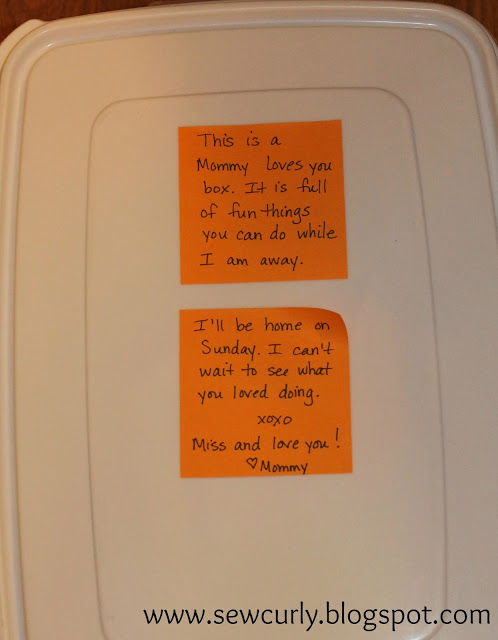 This is a
Mommy loves you
box. It is full
of fun things
you can do while
I am away.
I'll be home on
Sunday. I can't
wait to see what
you loved doing.
xoxo
Miss and love you!
♡Mommy
www.sewcurly.blogspot.com